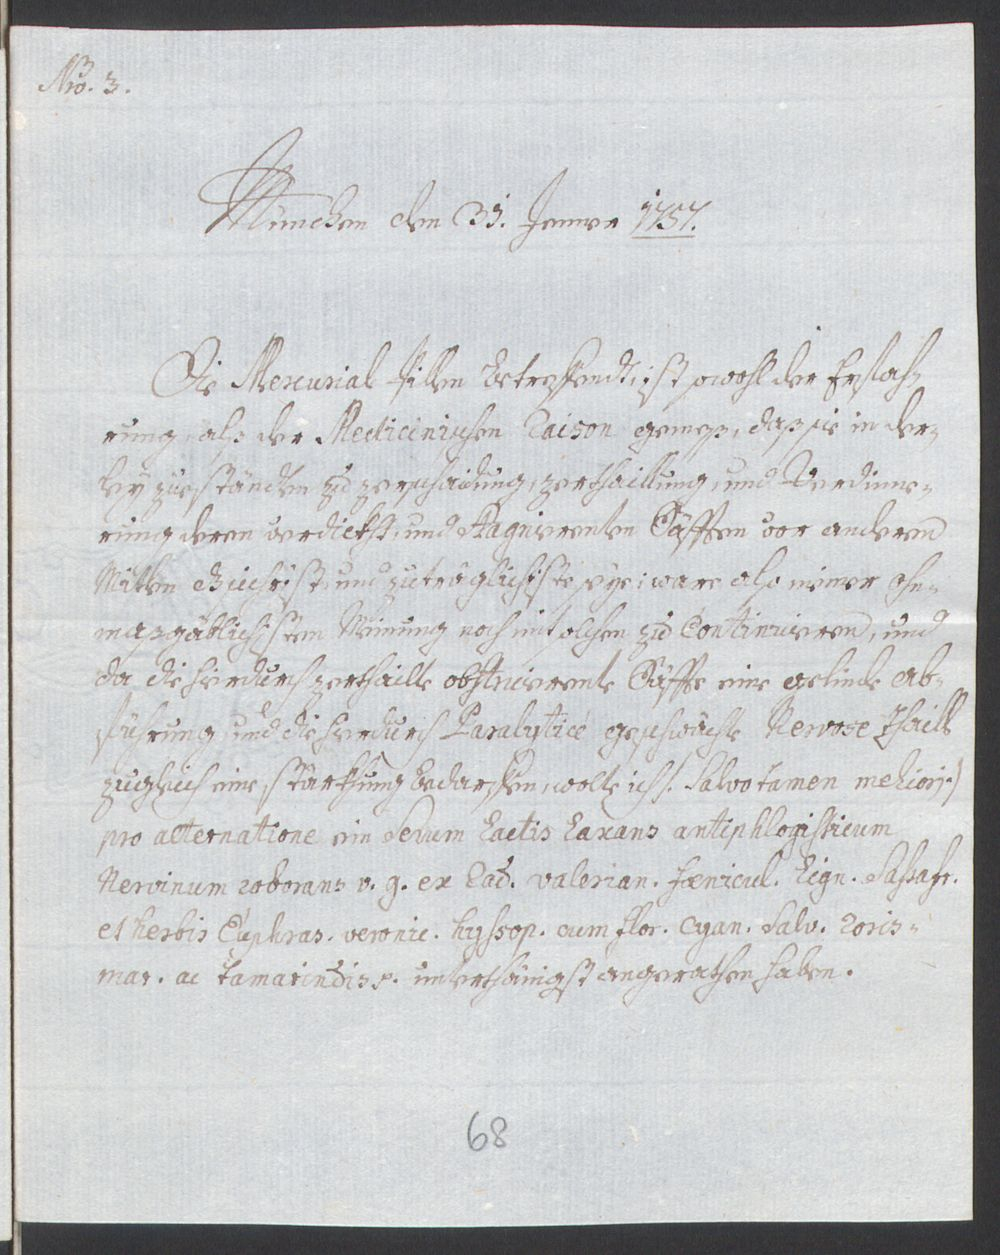 Nro. 3.
München den 31. Jenner 1757.
Die Mercurial Pillen betreffendt, ist sowohl der Erfah-
rung, alß der Medicinischen Raison gemeß, daß sie in der-
ley zueständten zu zerschaidung, zerthaillung, und Verdinne-
rung deren verdickht, und stagnierenten Säfften vor anderen
Mitlen die sicherist, und zuträglichiste seye; ware also meiner ohn-
maßgäblichisten Meinung noch mit solchen zu Continuieren, und
da die hierdurch zerthailte obstruierente Säffte eine gelinde Ab-
führung, und die hierdurch Paralytice geschwächte Nervose thaill
zugleich eine stärkhung bedarffen, wolte ich /: Salvo tamen meliori :/
pro alternatione ein Serum Lactis Laxans antiphlogisticum
Nervinum roborans v. g. ex Rad. valerian. fœnicul. Lign. Sassafr.
et herbis Euphras. veronic. hyssop. cum flor. Cyan. Salv. roris-
mar. ac tamarindis p. unterthänigst angerathen haben.
68